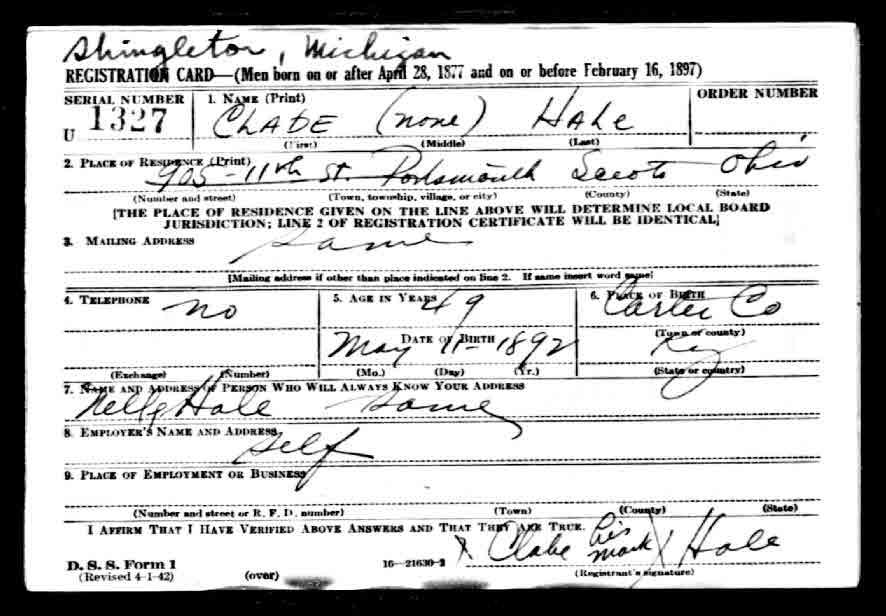 Shingleton, Michigan
REGISTRATION CARD—(Men born on or after April 28, 1877 and on or before February 16, 1897)
SERIAL NUMBER 1. NAME (Print) ORDER NUMBER
U 1327 CLABE (none) HALE
(First) (Middle) (Last)
2. PLACE OF RESIDENCE (Print)
905 - 11th St. Portsmouth Scioto Ohio
(Number and street) (Town, township, village, or city) (County) (State)
[THE PLACE OF RESIDENCE GIVEN ON THE LINE ABOVE WILL DETERMINE LOCAL BOARD
JURISDICTION; LINE 2 OF REGISTRATION CERTIFICATE WILL BE IDENTICAL]
3. MAILING ADDRESS
Same
[Mailing address if other than place indicated on line 2. If same insert word same]
4. TELEPHONE 5. AGE IN YEARS 6. PLACE OF BIRTH
no 49 Carter Co
DATE OF BIRTH (Town or county)
May 11 - 1892 Ky
(Exchange) (Number) (Mo.) (Day) (Yr.) (State or country)
7. NAME AND ADDRESS OF PERSON WHO WILL ALWAYS KNOW YOUR ADDRESS
Hale Same
8. EMPLOYER'S NAME AND ADDRESS
Self
9. PLACE OF EMPLOYMENT OR BUSINESS
(Number and street or R. F. D. number) (Town) (County) (State)
I AFFIRM THAT I HAVE VERIFIED ABOVE ANSWERS AND THAT THEY ARE TRUE.
X Clabe his mark X Hale
D. S. S. Form 1 16—21630-2 (Registrant's signature)
(Revised 4-1-42) (over)